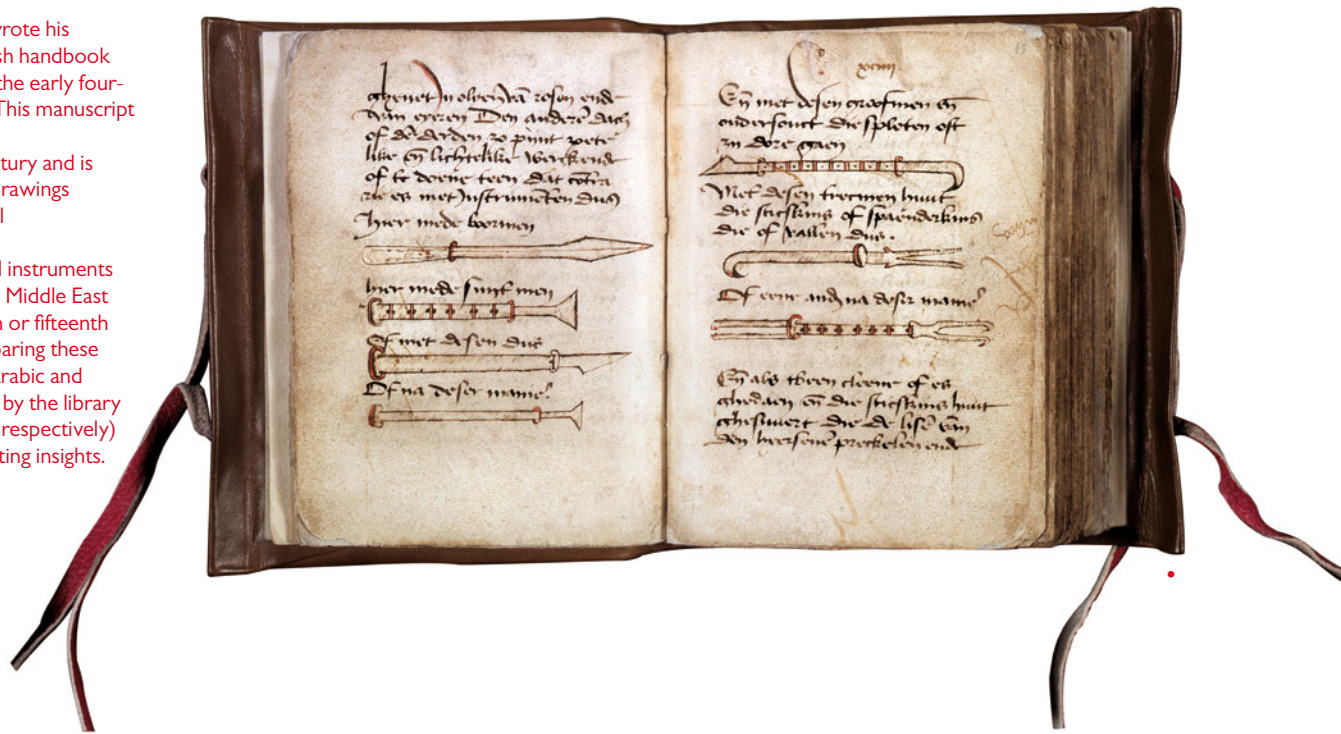 rote his
sh handbook
the early four-
This manuscript
tury and is
rawings
l
l instruments
Middle East
n or fifteenth
paring these
rabic and
by the library
respectively)
ting insights.
ghenet olven vā rosen ende
van eyeren Den anderē dach
of dē derden zo pijnt zoete
like eñ lichtelike
of te doene teen dat cōtra
rie es met Instrumēten dus
hier mede boermen
hier mede sniit men
Of met desen dus
Of na deser maniē
xciiij
Eñ met desen groefmen eñ
ondersouct die spleten oft
zij dore gaen
Met desen trecmen huut
die sticskins of spaenderkins
die of vallen dus.
Of eene andz na deser maniē
Eñ als tbeen cleene of es
ghedaen eñ die sticskins huut
ghesuuert die de lise van
den hersenē preckelen ende